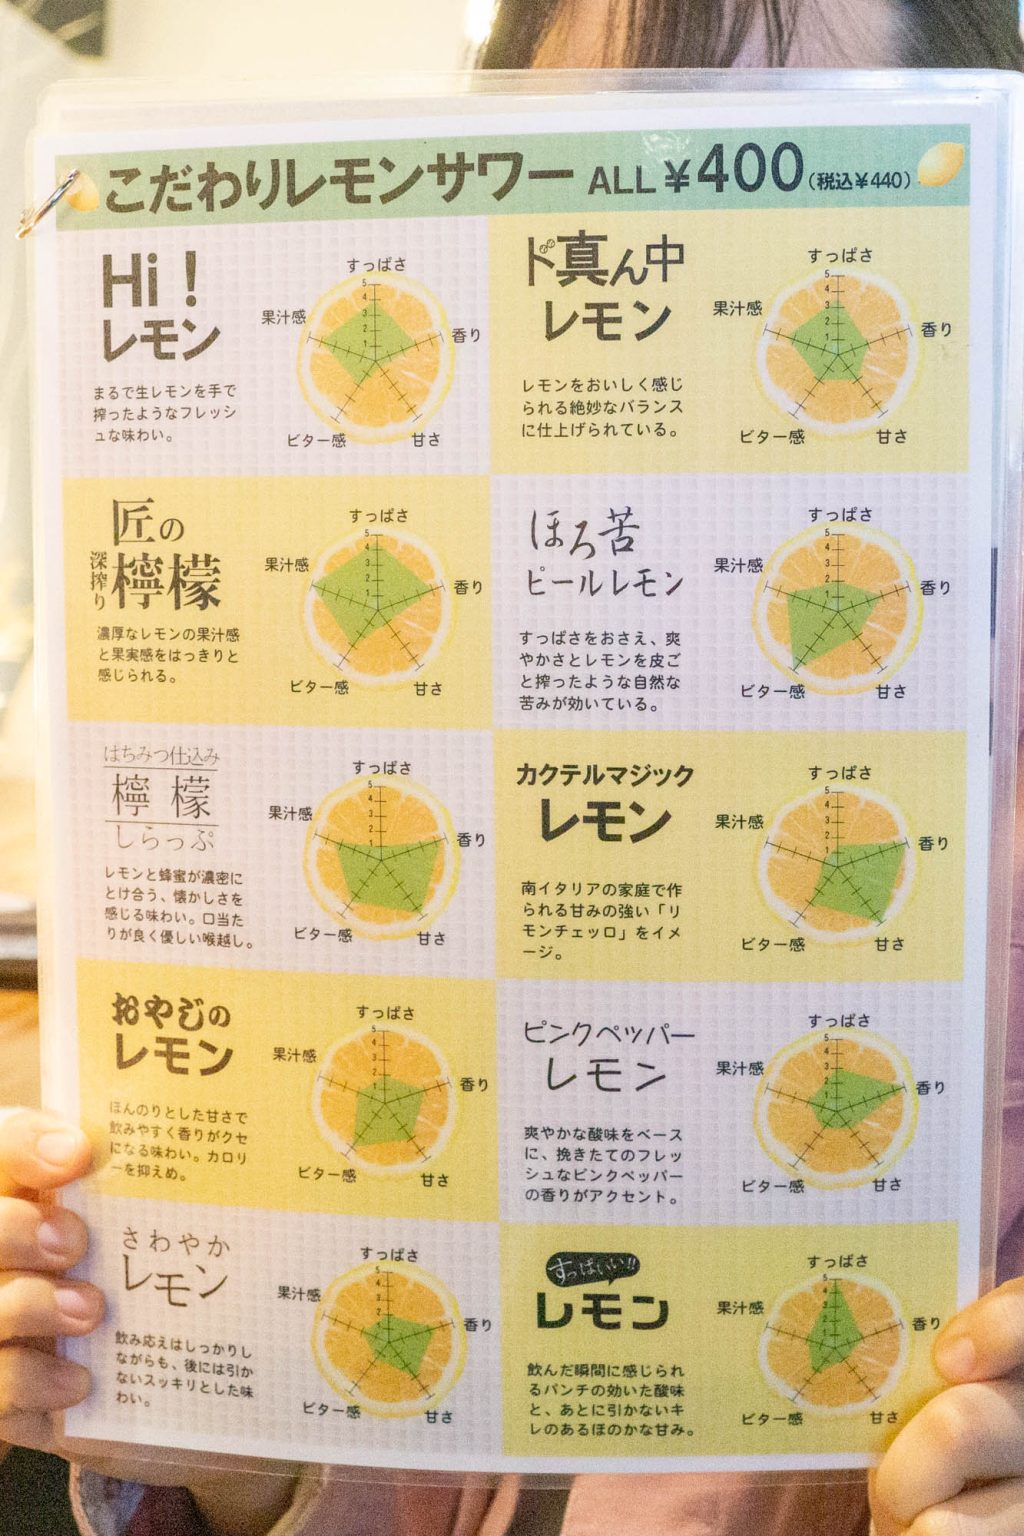 こだわりレモンサワー ALL ¥400(税込¥440)
Hi!
レモン
まるで生レモンを手で
搾ったようなフレッシ
ュな味わい。
すっぱさ
果汁感
香り
ビター感
甘さ
5
4
3
2
1
ド真ん中
レモン
レモンをおいしく感じ
られる絶妙なバランス
に仕上げられている。
すっぱさ
果汁感
香り
ビター感
甘さ
5
4
3
2
1
匠の
深搾り
檸檬
濃厚なレモンの果汁感
と果実感をはっきりと
感じられる。
すっぱさ
果汁感
香り
ビター感
甘さ
5
4
3
2
1
ほろ苦
ピールレモン
すっぱさをおさえ、爽
やかさとレモンを皮ご
と搾ったような自然な
苦みが効いている。
すっぱさ
果汁感
香り
ビター感
甘さ
5
4
3
2
1
はちみつ仕込み
檸檬
しらっぷ
レモンと蜂蜜が濃密に
とけ合う、懐かしさを
感じる味わい。口当た
りが良く優しい喉越し。
すっぱさ
果汁感
香り
ビター感
甘さ
5
4
3
2
1
カクテルマジック
レモン
南イタリアの家庭で作
られる甘みの強い「リ
モンチェッロ」をイメ
ージ。
すっぱさ
果汁感
香り
ビター感
甘さ
5
4
3
2
1
おやじの
レモン
ほんのりとした甘さで
飲みやすく香りがクセ
になる味わい。カロリ
ーを抑えめ。
すっぱさ
果汁感
香り
ビター感
甘さ
5
4
3
2
1
ピンクペッパー
レモン
爽やかな酸味をベース
に、挽きたてのフレッ
シュなピンクペッパー
の香りがアクセント。
すっぱさ
果汁感
香り
ビター感
甘さ
5
4
3
2
1
さわやか
レモン
飲み応えはしっかりし
ながらも、後には引か
ないスッキリとした味
わい。
すっぱさ
果汁感
香り
ビター感
甘さ
5
4
3
2
1
すっぱいい!!
レモン
飲んだ瞬間に感じられ
るパンチの効いた酸味
と、あとに引かないキ
レのあるほのかな甘み。
すっぱさ
果汁感
香り
ビター感
甘さ
5
4
3
2
1